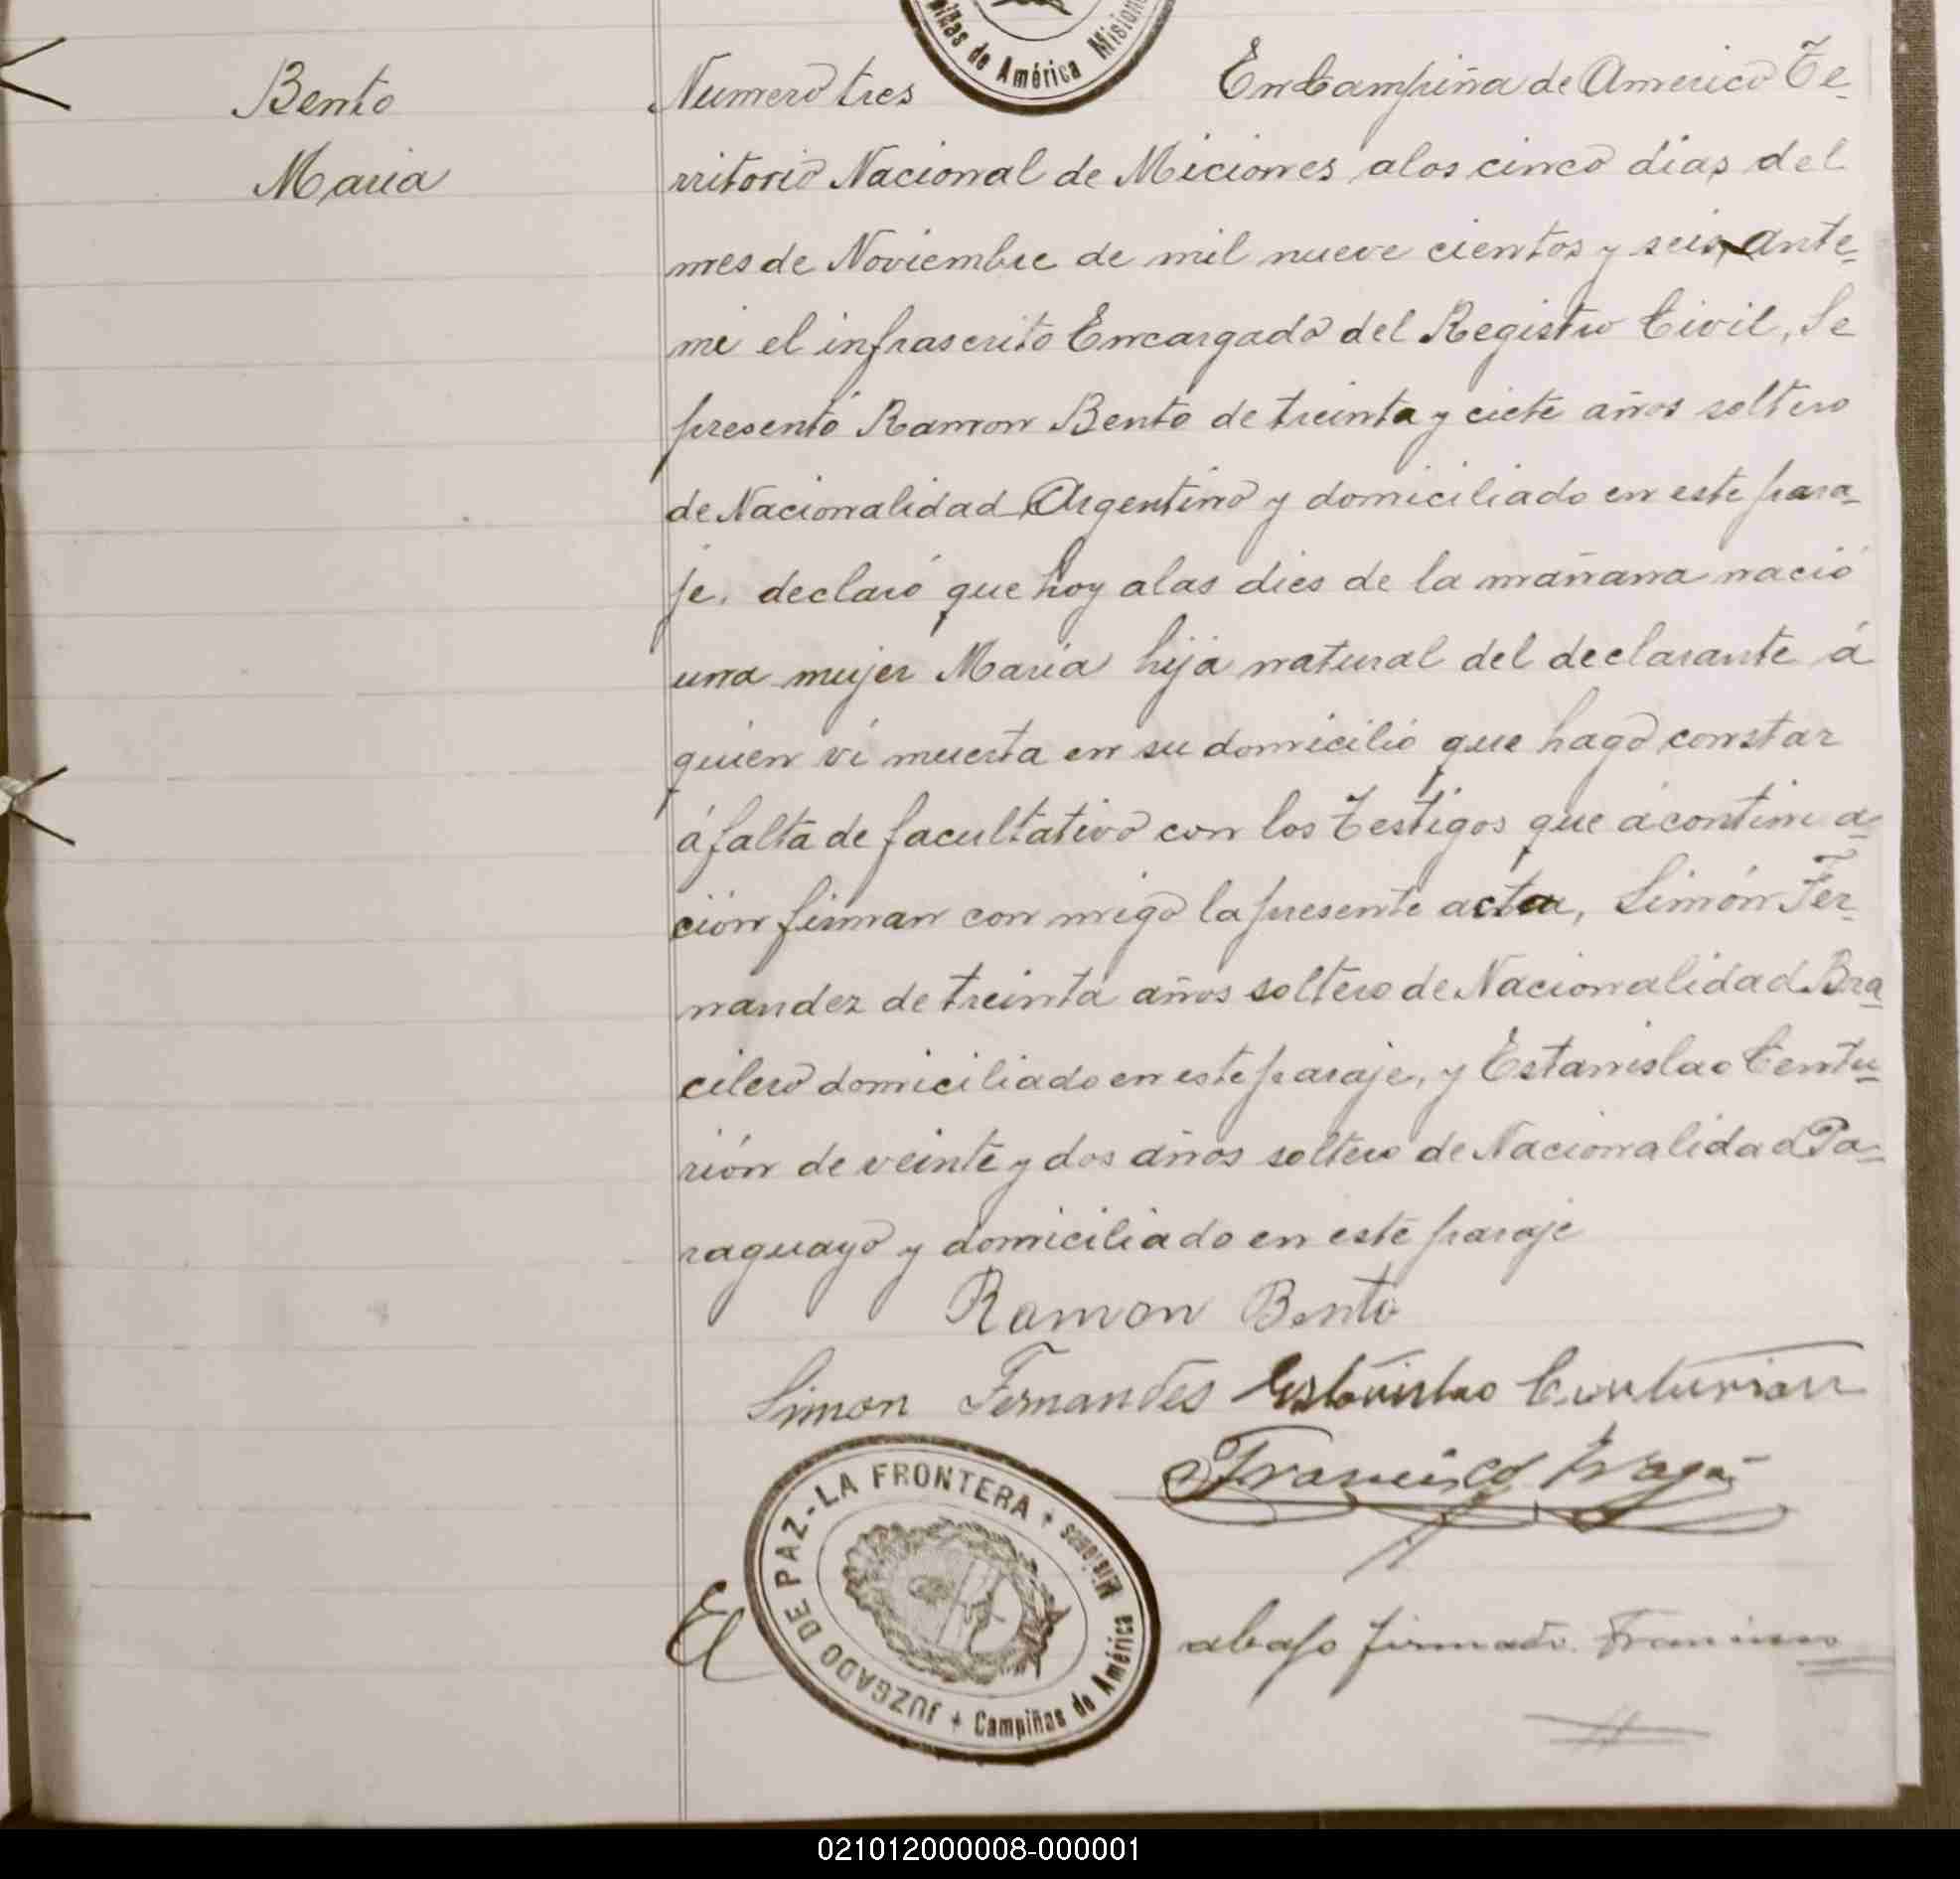 iñas de América Misione
Bento
Maria
Numero tres
En Campiña de America Te-
rritorio Nacional de Miciones alos cinco dias del
mes de Noviembre de mil nueve cientos y seis, ante-
mi el infrascrito Encargado del Registro Civil, Se
presentó Ramon Bento de treinta y ciete años soltero
de Nacionalidad Argentino y domiciliado en este para-
je. declaró que hoy alas dies de la mañana nació
una mujer Maria hija natural del declarante á
quien vi muerta en su domicilio que hago constar
á falta de facultativo con los Testigos que á continua-
ción firman con migo la presente acta, Simón Fer-
nandez de treinta años soltero de Nacionalidad Bra-
cilero domiciliado en este paraje, y Estanislao Centu-
rión de veinte y dos años soltero de Nacionalidad Pa-
raguayo y domiciliado en este paraje
Ramon Bento
Simon Fernandes Estanislao Centurion
Francisco
JUZGADO DE PAZ - LA FRONTERA + Misiones
Campiñas de América +
El abajo firmado Francisco
021012000008-000001